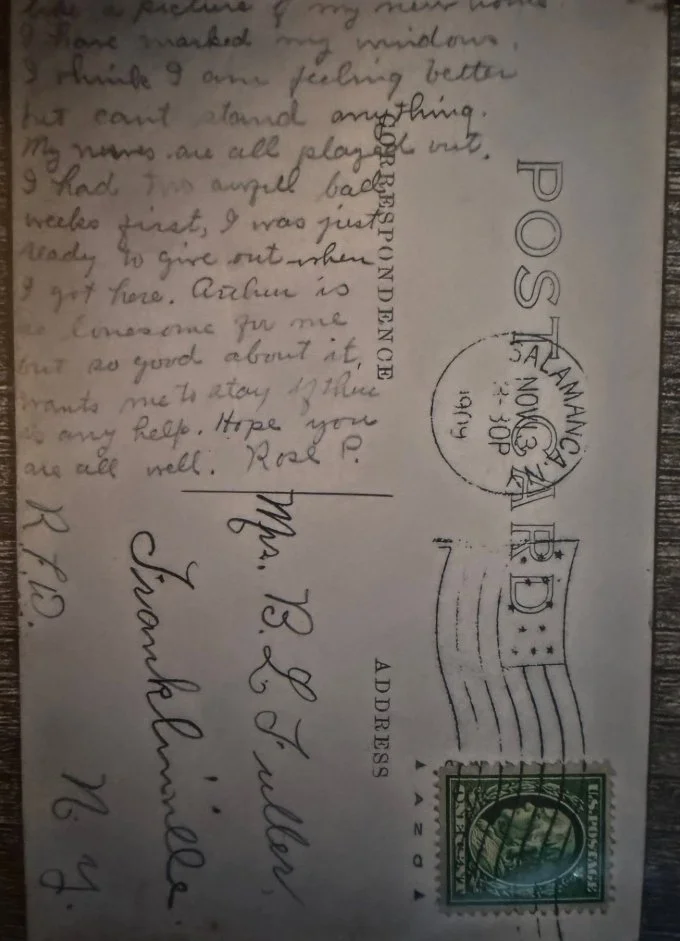 like a picture of my new home
I have marked my windows.
I think I am feeling better
but cant stand anything.
My nerves are all played out.
I had two awfull bad
weeks first, I was just
ready to give out when
I got here. Archer is
so lonesome for me
but so good about it,
wants me to stay if there
is any help. Hope you
are all well. Rose P.
CORRESPONDENCE
POST CARD
SALAMANCA. N.Y.
NOV 3
30P
19
ADDRESS
Mrs. B. L. Fuller,
Franklinville.
R.F.D. N.Y.
U.S. POSTAGE
ONE CENT